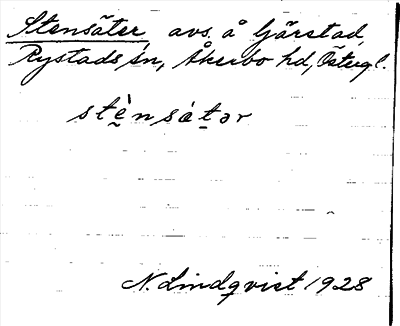 Stensäter avs. å Gärstad,
Rystads sn, Åkerbo hd, Östergl.
stènsátər
N. Lindqvist 1928